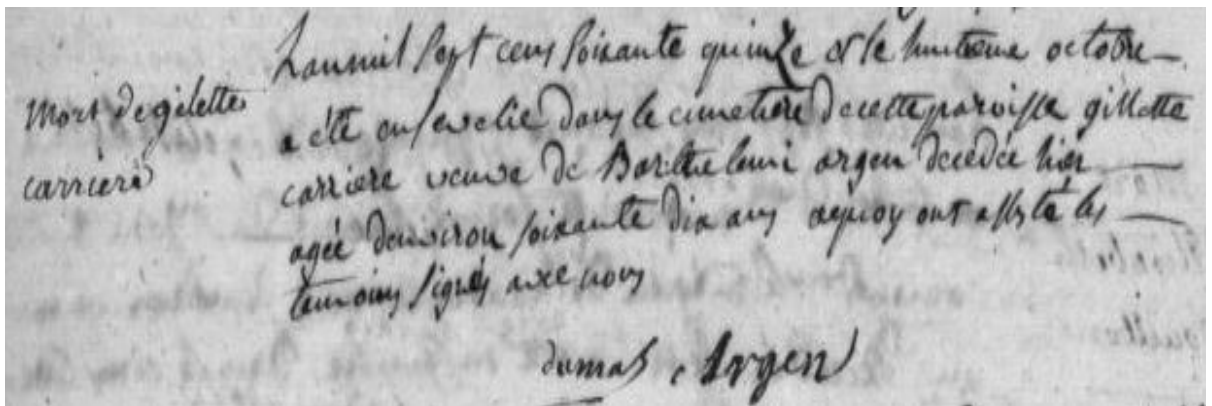 Mort de gilette
carriere
Lan mil sept cens soixante quinze et le huitieme octobre
a été ensevelie dans le cimetiere de cette paroisse gillette
carriere veuve de Barthelemi argen decedée hier
agée denviron soixante dix ans aquoy ont assisté les
temoins signés avec nous
dumas Argen